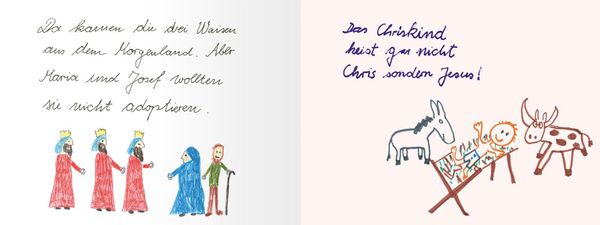 Da kamen die drei Waisen
aus dem Morgenland. Aber
Maria und Josef wollten
sie nicht adoptieren.
Das Chriskind
heist gar nicht
Chris sondern Jesus!